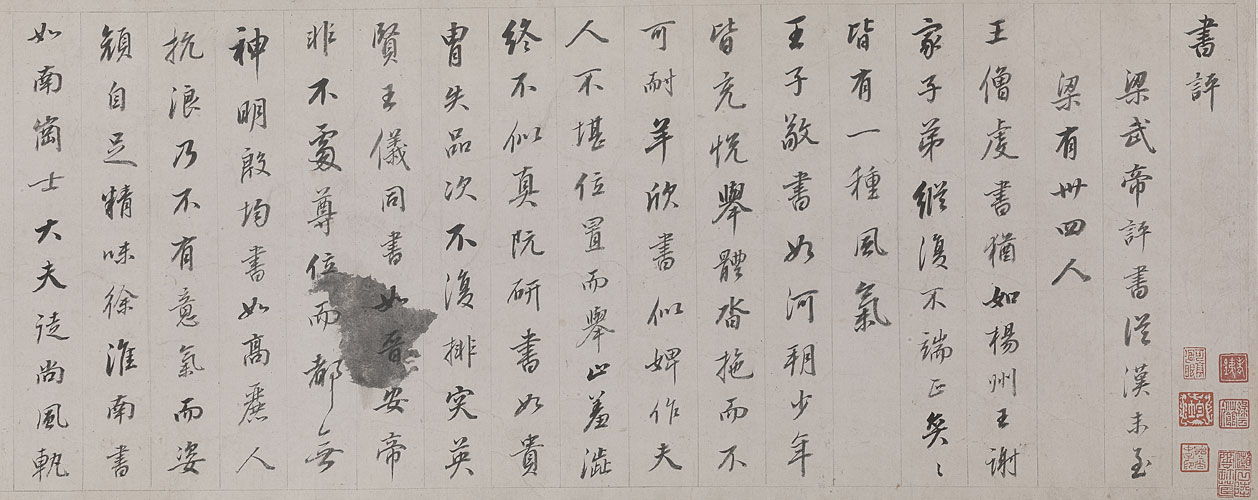 書評
梁武帝評書從漢末至
梁有卅四人
王僧虔書猶如楊州王謝
家子弟縱復不端正奕〻
皆有一種風氣
王子敬書如河朔少年
皆充悅舉體沓拖而不
可耐羊欣書似婢作夫
人不堪位置而舉止羞澁
終不似真阮研書如貴
胄失品次不復排突英
賢王儀同書如晉安帝
非不處尊位而都〻無
神明殷均書如高麗人
抗浪乃不有意氣而姿
顏自足精味徐淮南書
如南崗士大夫徒尚風軌